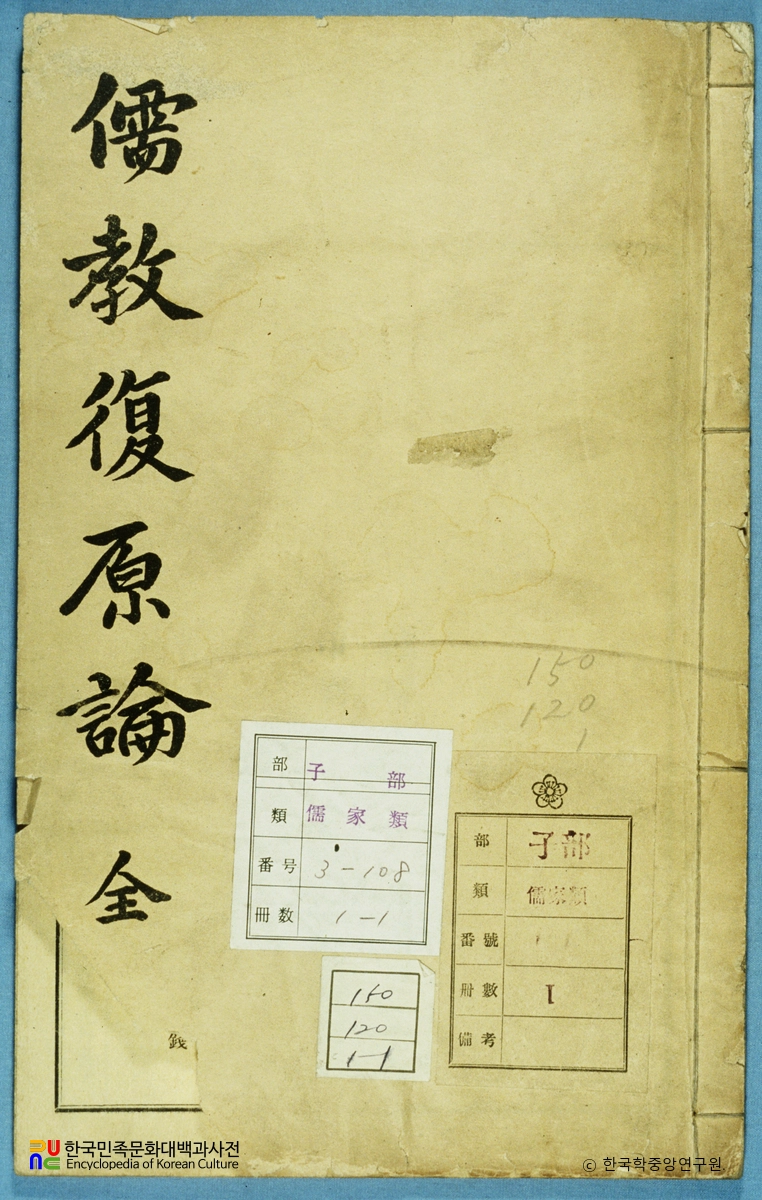 儒教復原論 全
150
120
1
部 子 部
類 儒家類
番号 3-108
冊数 1-1
部 子部
類 儒家類
番號
冊數 1
備考
150
120
1-1
錢
한국민족문화대백과사전
Encyclopedia of Korean Culture
© 한국학중앙연구원